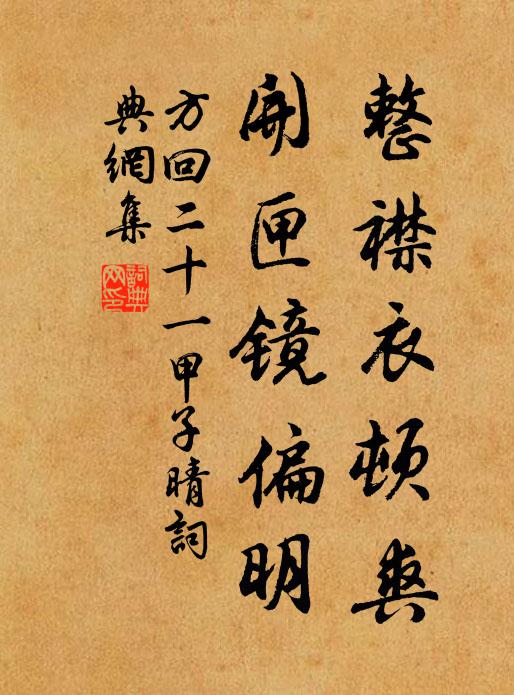 整襟衣頓爽
開匣镜偏明
方回二十一甲子晴詞
典網集
詞典网印